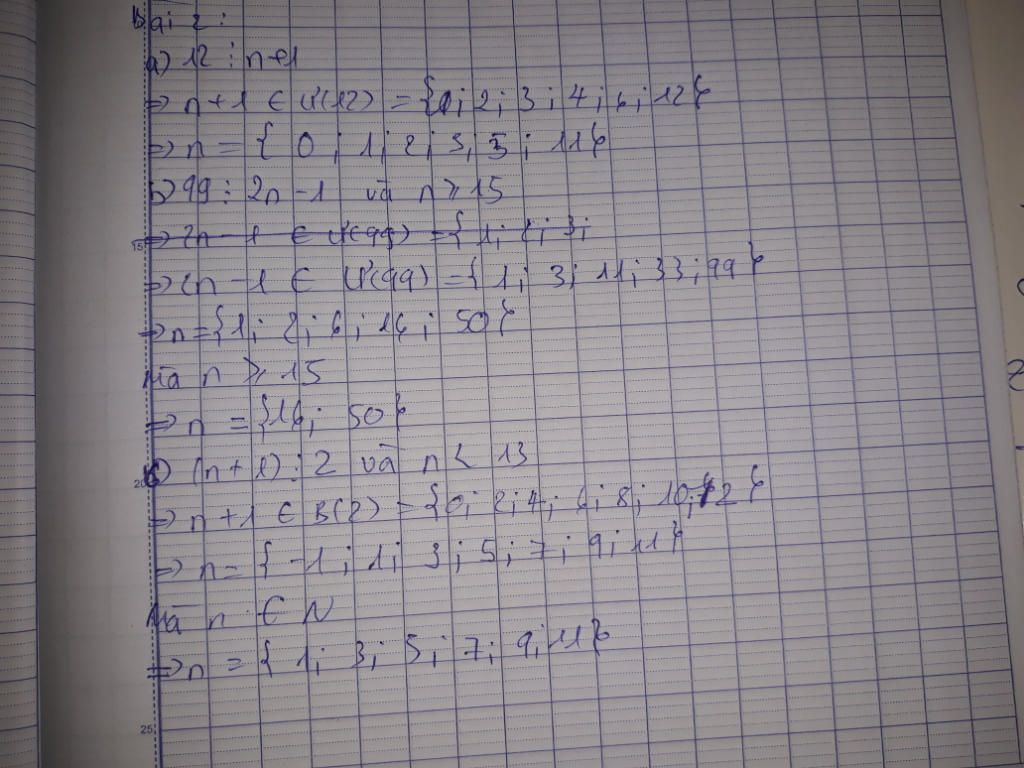 Bài 2:
a) 12 ⋮ n+1
=> n+1 ∈ Ư(12) = {1; 2; 3; 4; 6; 12}
=> n = { 0; 1; 2; 3; 5; 11}
b) 99 ⋮ 2n-1 và n ≥ 15
=> 2n-1 ∈ Ư(99) = {1; 2; 3;
15
=> 2n-1 ∈ Ư(99) = {1; 3; 11; 33; 99}
=> n = {1; 2; 6; 16; 50}
Mà n ≥ 15
=> n = {16; 50}
c) (n+1) ⋮ 2 và n < 13
20
=> n+1 ∈ B(2) = {0; 2; 4; 6; 8; 10; 12}
=> n = { -1; 1; 3; 5; 7; 9; 11}
Mà n ∈ N
=> n = { 1; 3; 5; 7; 9; 11}
25